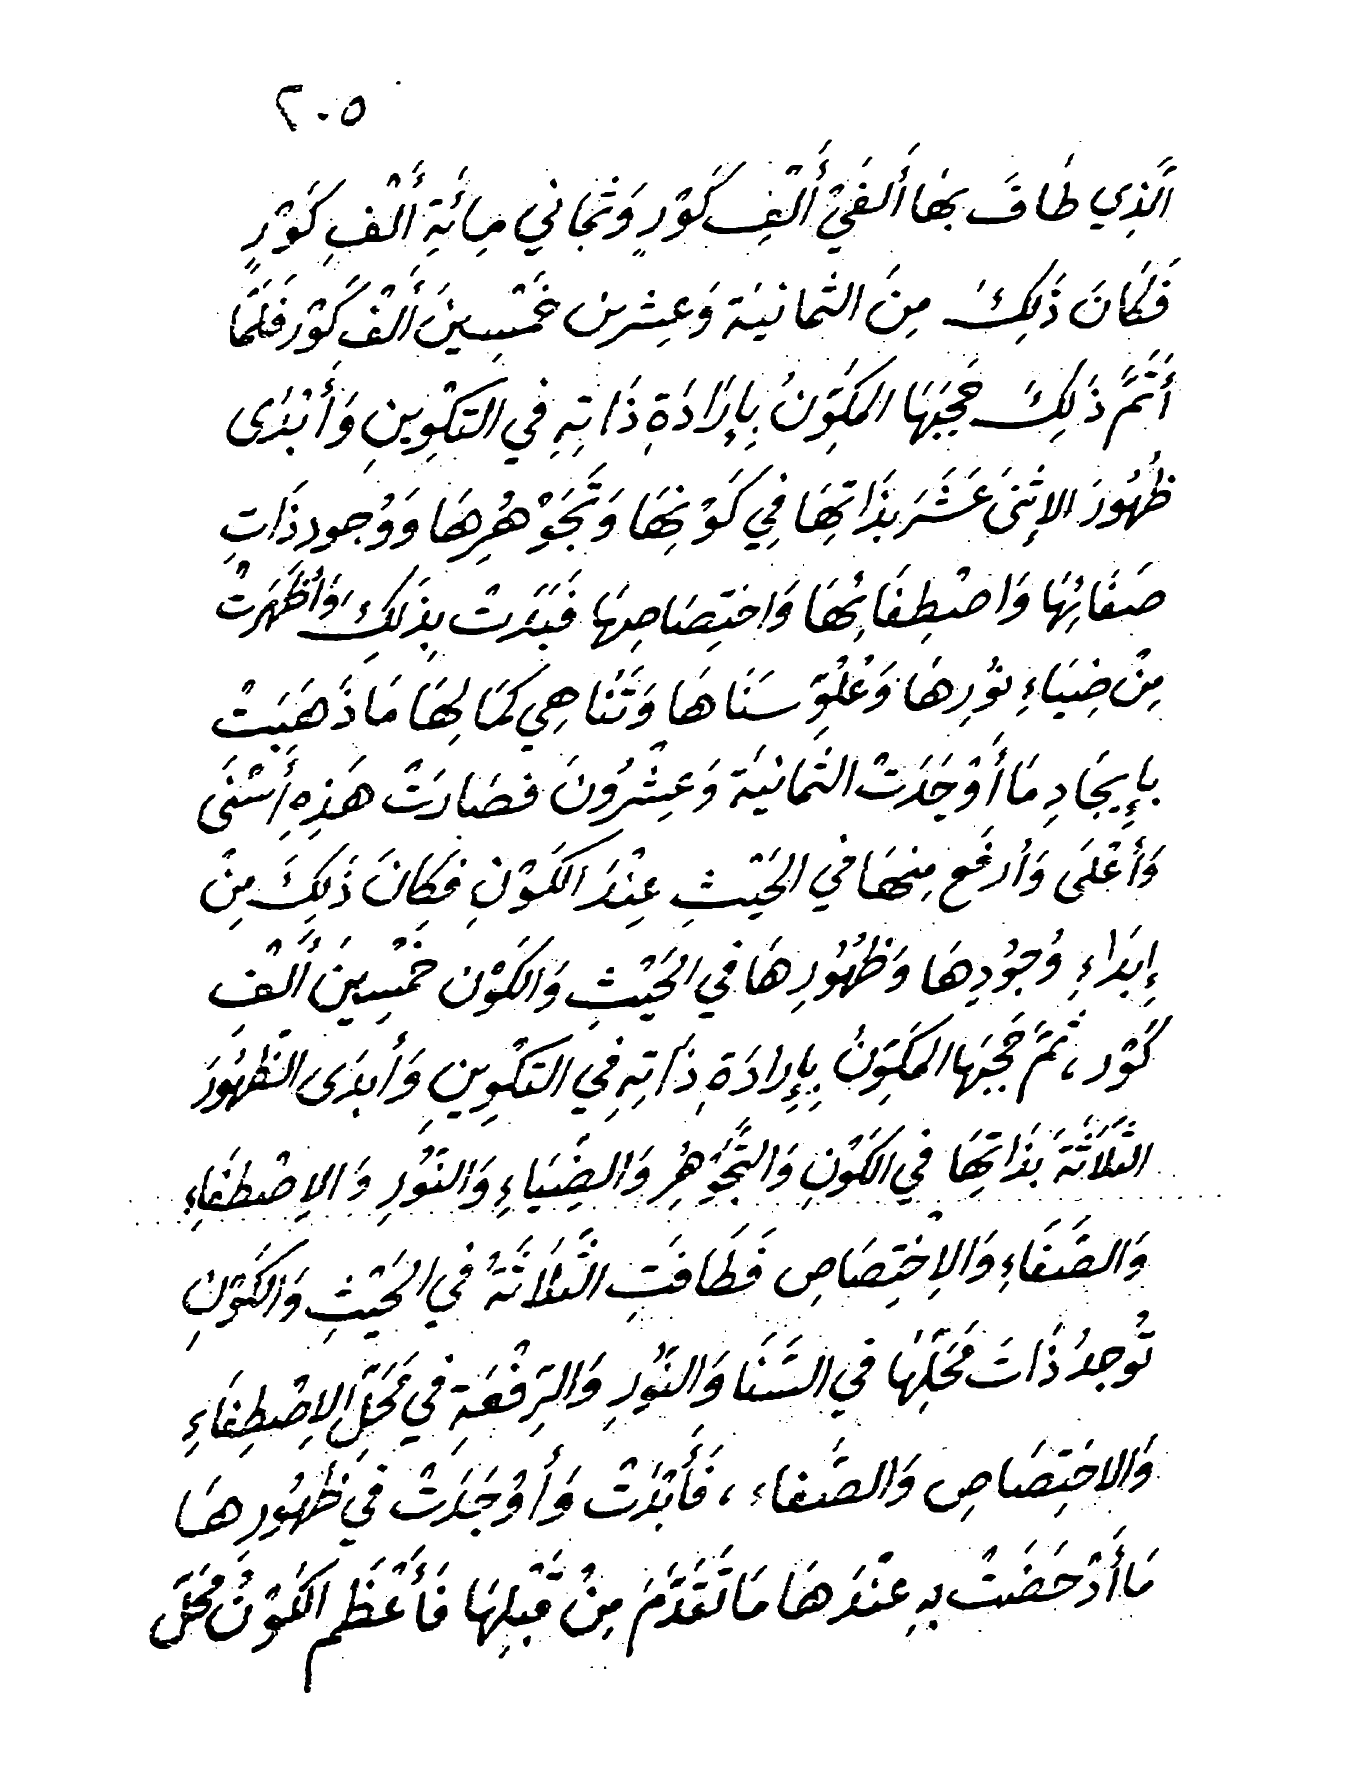 ٢٠٥
الَّذِي طَافَ بِهَا أَلفَيْ أَلْفِ كَوْرٍ وَثَمَانِي مِائَةِ أَلْفِ كَوْرٍ
فَكَانَ ذَلِكَ مِنَ الثمانيَة وَعِشرين خَمْسِينَ أَلفَ كَوْر فَلَمَّا
أَتَمَّ ذَلِكَ حَجَبَهَا المكَوِّنُ بِإِرَادَةِ ذَاتِهِ فِي التَكْوِينِ وَأَبْدَى
ظُهُورَ الإِثنَى عَشَرَ بِذَاتِهَا فِي كَوْنِهَا وَتَجَوْهُرِهَا وَوُجودِ ذَاتِ
صَفَائِهَا وَاصْطِفَائِهَا وَاختِصَاصِهَا فَبَدَت بِذَلِكَ وَأَظْهَرَتْ
مِنْ ضِيَاءِ نُورِهَا وَعُلُوِّ سَنَاهَا وَتَنَاهِي كَمَالِهَا مَا ذَهَبَتْ
بِإِيجَادِ مَا أَوْجَدَتْ الثمَانيَة وَعِشْرُونَ فصَارَتْ هَذِهِ أَسْنَى
وَأَعْلَى وَأرفَع مِنهَا في الحَيْثِ عِنْدَ الكَوْنِ فَكَانَ ذَلِكَ مِنْ
إِبدَاءِ وُجُودِهَا وَظُهُورِهَا في الحَيْثِ وَالكَوْن خَمْسِينَ أَلْفَ
كَوْر، ثُمَّ حَجَبَهَا المكَوِّنُ بِإِرادَةِ ذَاتِهِ فِي التَكْوِينِ وَأَبدَى الظُهُورَ
الثَّلَاثَةَ بِذَاتِهَا في الكَوْنِ وَالتَّجَوْهُرِ وَالضِّيَاءِ وَالنّوُرِ وَالاِصْطِفَاءِ
وَالصَّفَاءِ وَالاِخْتِصَاصِ فَطَافَتِ الثَّلَاثَةُ في الحَيْثِ وَالكَوْنِ
تُوجدُ ذَاتَ مَحَلِّهَا في السَّنَا وَالنّوُرِ وَالرِّفْعَةِ في مَحَلِّ الاِصْطِفَاءِ
وَالاختِصَاصِ وَالصَّفاء، فَأَبْدَت وَأَوْجَدَتْ في ظُهُورِهَا
مَا أَدْحَضَتْ بِهِ عنْدَهَا مَا تَقَدَّمَ مِنْ قَبْلِهَا فَأَعْظَم الكَوْنُ مَحَلّ